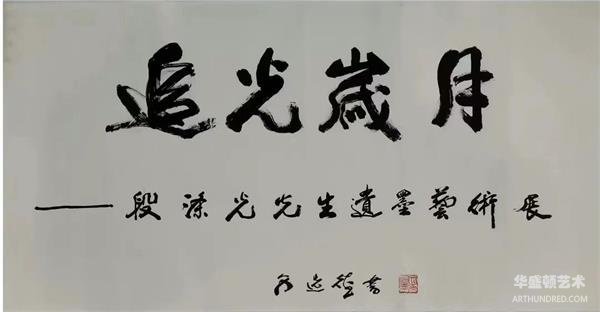 追光歲月
——段涤光先生遺墨藝術展
华盛顿艺术
ARTHUNDRED.COM